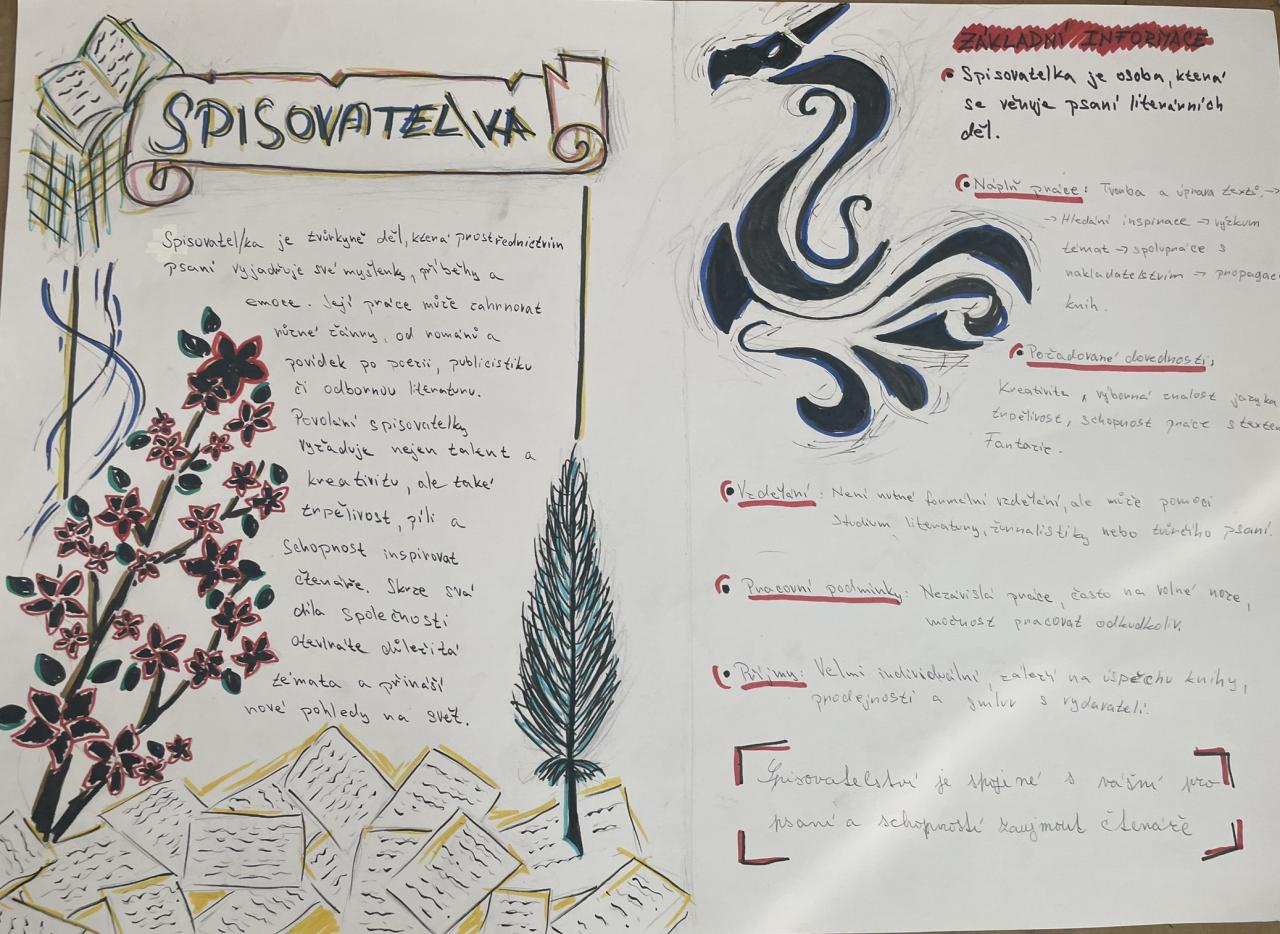 SPISOVATEL\KA
Spisovatel/ka je tvůrkyně děl, která prostřednictvím
psaní vyjadřuje své myšlenky, příběhy a
emoce. Její práce může zahrnovat
různé žánry, od románů a
povídek po poezii, publicistiku
či odbornou literaturu.
Povolání spisovatelky
vyžaduje nejen talent a
kreativitu, ale také
trpělivost, píli a
schopnost inspirovat
čtenáře. Skrze svá
díla společnosti
důležitá
témata a přináší
nové pohledy na svět.
ZÁKLADNÍ INFORMACE
• Spisovatelka je osoba, která
se věnuje psaní literárních
děl.
• Náplň práce: Tvorba a úprava textů. →
→ Hledání inspirace → výzkum
témat → spolupráce s
nakladatelstvím → propagace
knih.
• Požadované dovednosti:
Kreativita, výborná znalost jazyka
trpělivost, schopnost práce s textem
Fantazie.
• Vzdělání: Není nutné formální vzdělání, ale může pomoci
studium literatury, žurnalistiky nebo tvůrčího psaní.
• Pracovní podmínky: Nezávislá práce, často na volné noze,
možnost pracovat odkudkoliv.
• Příjmy: Velmi individuální, záleží na úspěchu knihy,
prodejnosti a smluv s vydavateli.
Spisovatelství je spojené s vášní pro
psaní a schopností zaujmout čtenáře